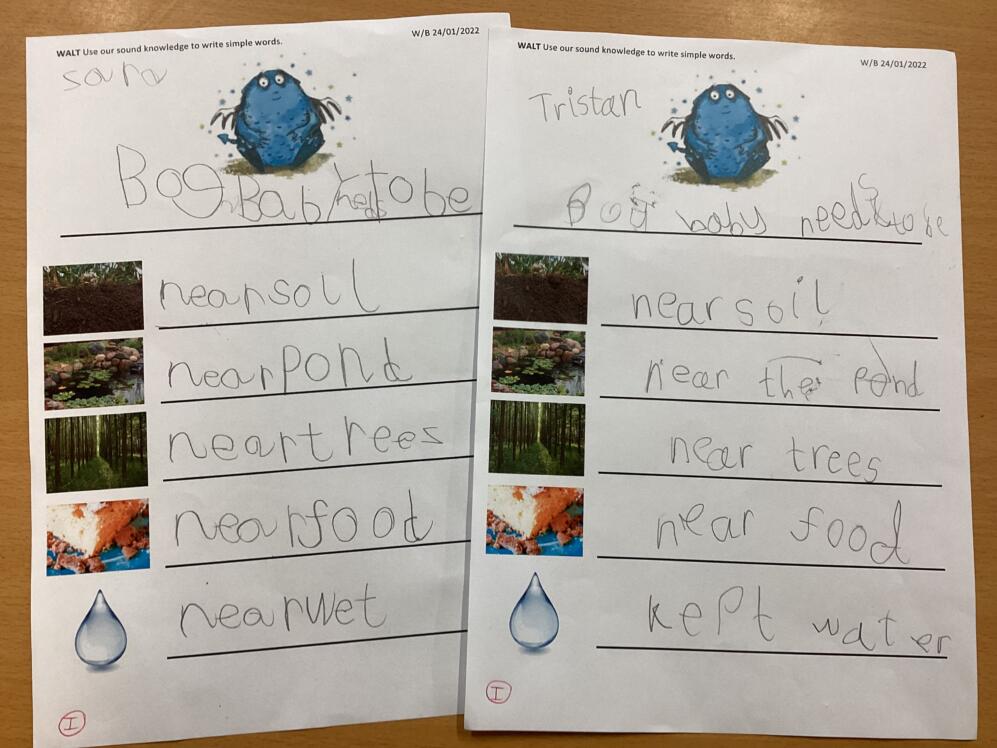 WALT Use our sound knowledge to write simple words.
W/B 24/01/2022
sara
Bog Baby needs to be
near soil
near pond
near trees
near food
near wet
I
WALT Use our sound knowledge to write simple words.
W/B 24/01/2022
Tristan
Bog baby needs to be
near soil
near the pond
near trees
near food
kept water
I